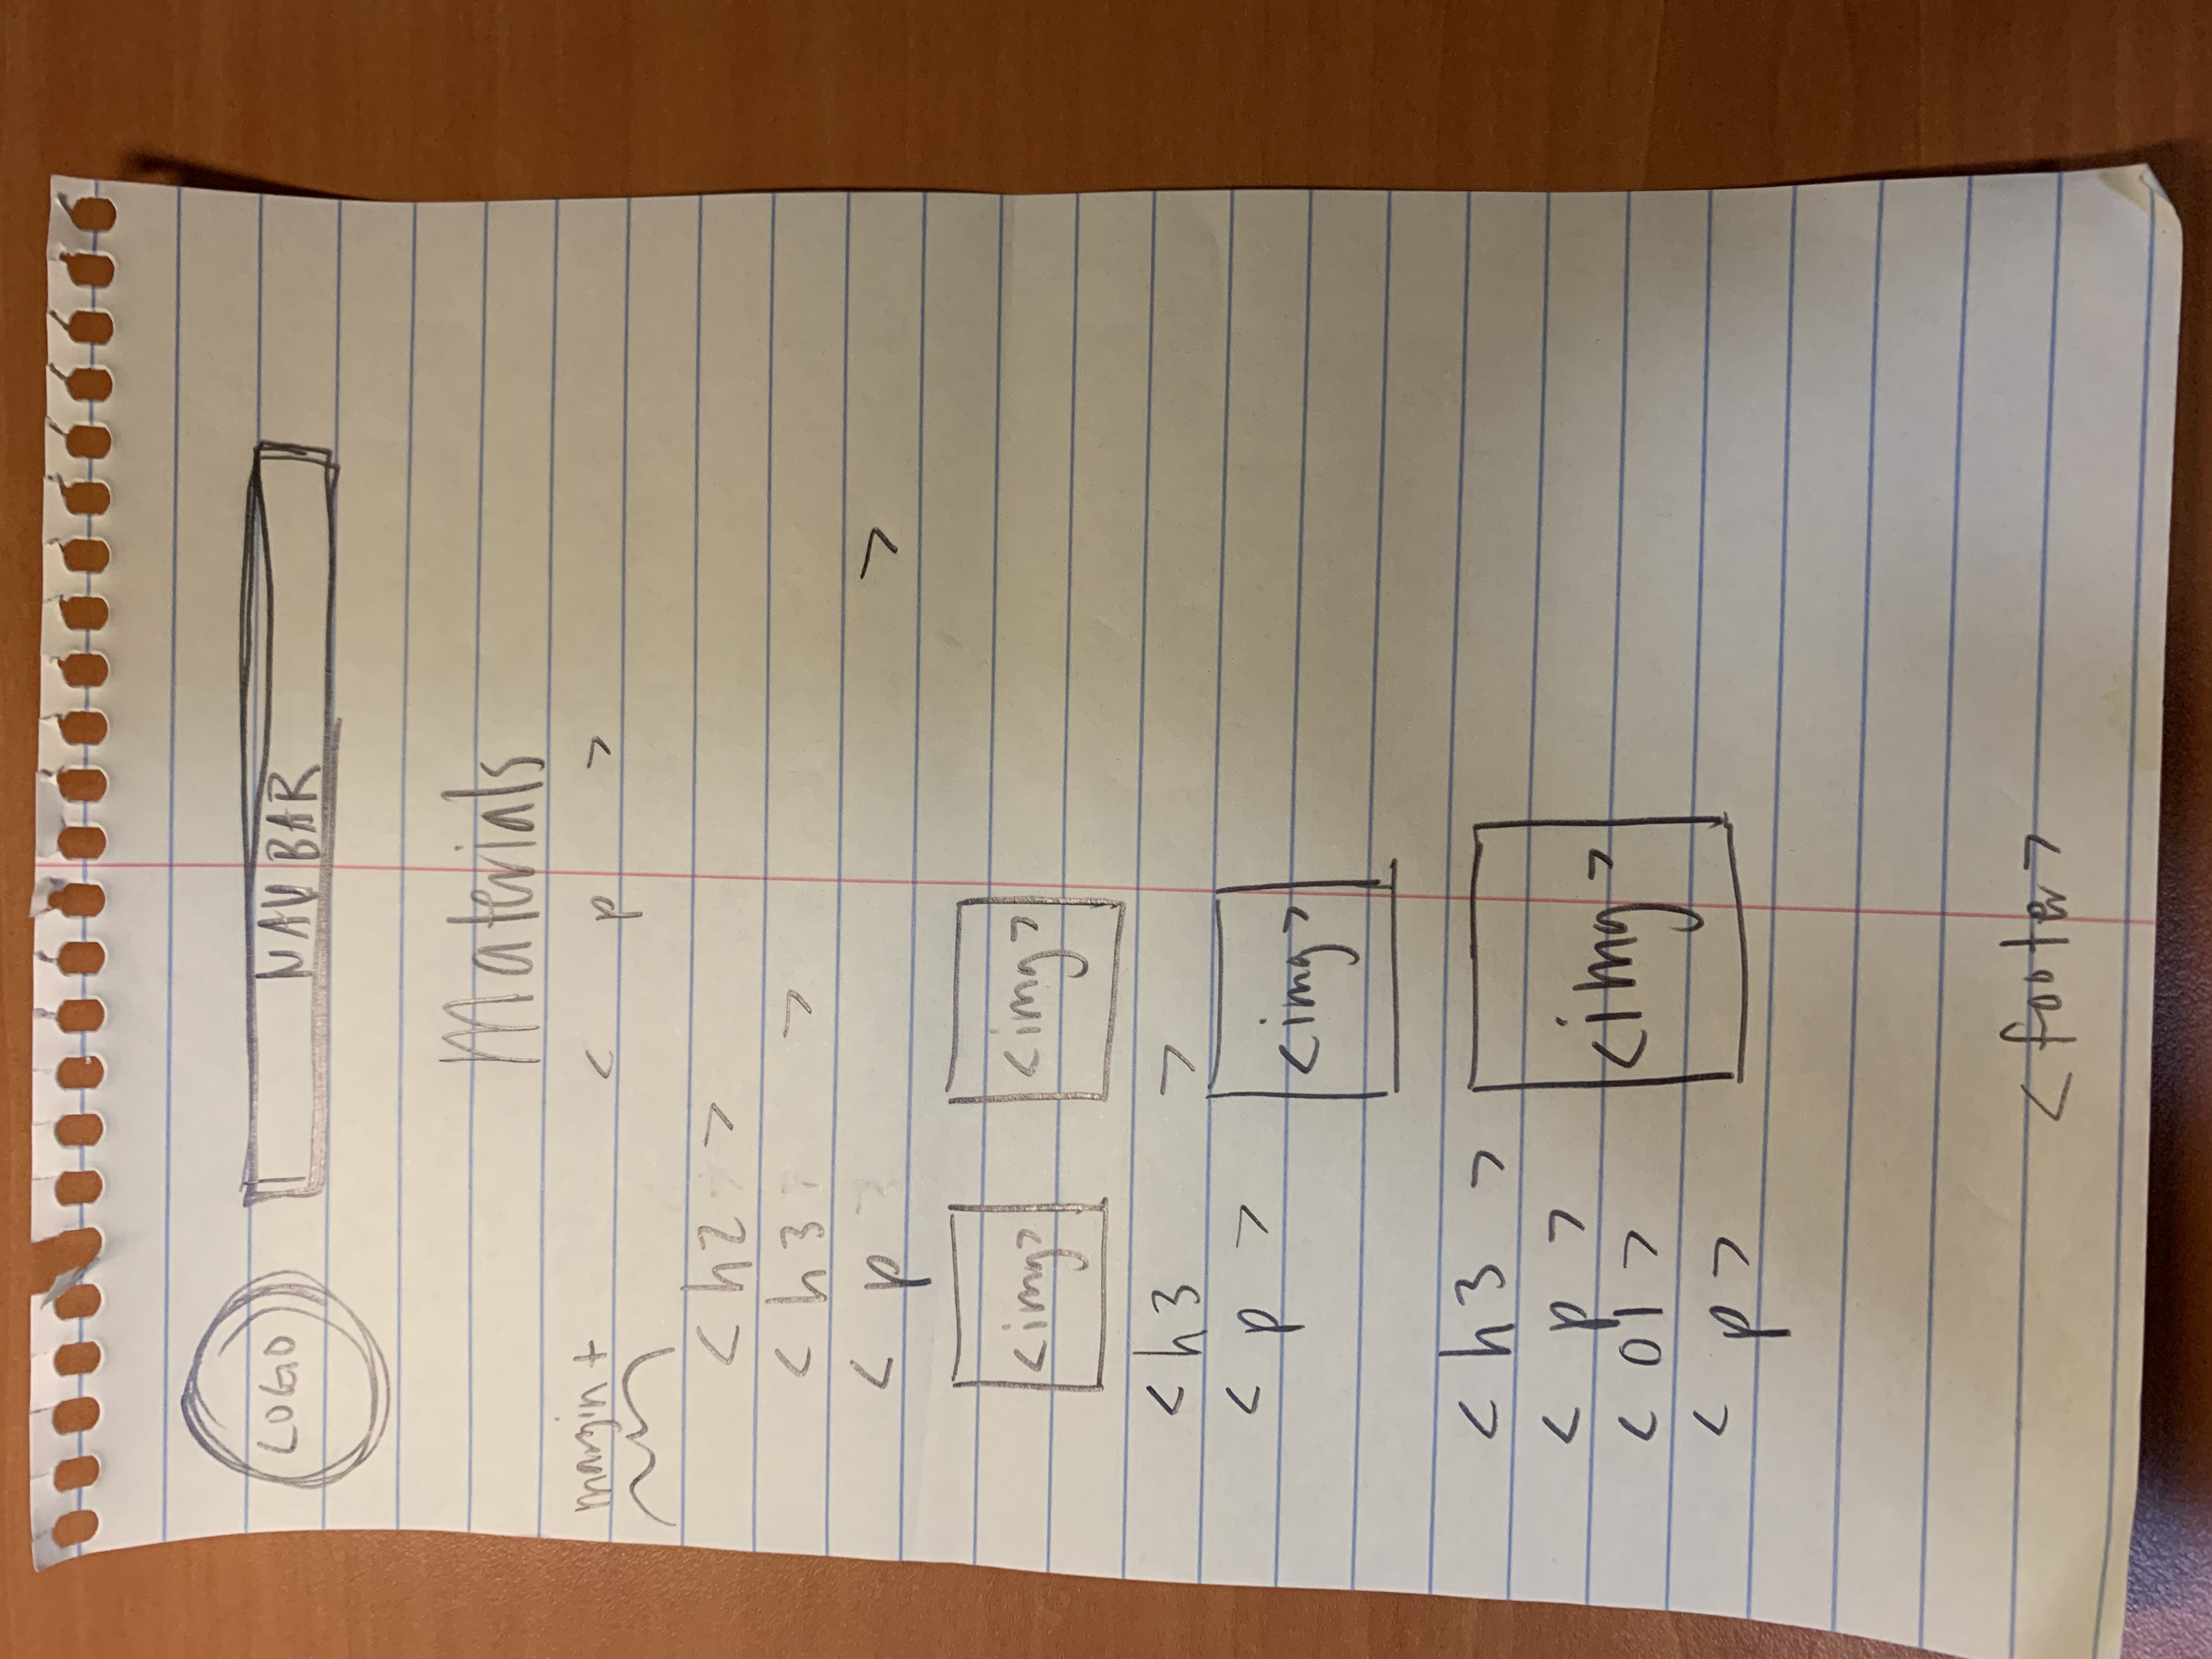 LOGO
NAV BAR
Materials
margin +
< p >
<h2 >
<h3 >
< p >
<img> <img>
<h3 >
< p >
<img>
< h3 >
< p >
<img>
< ol >
< p >
<footer>